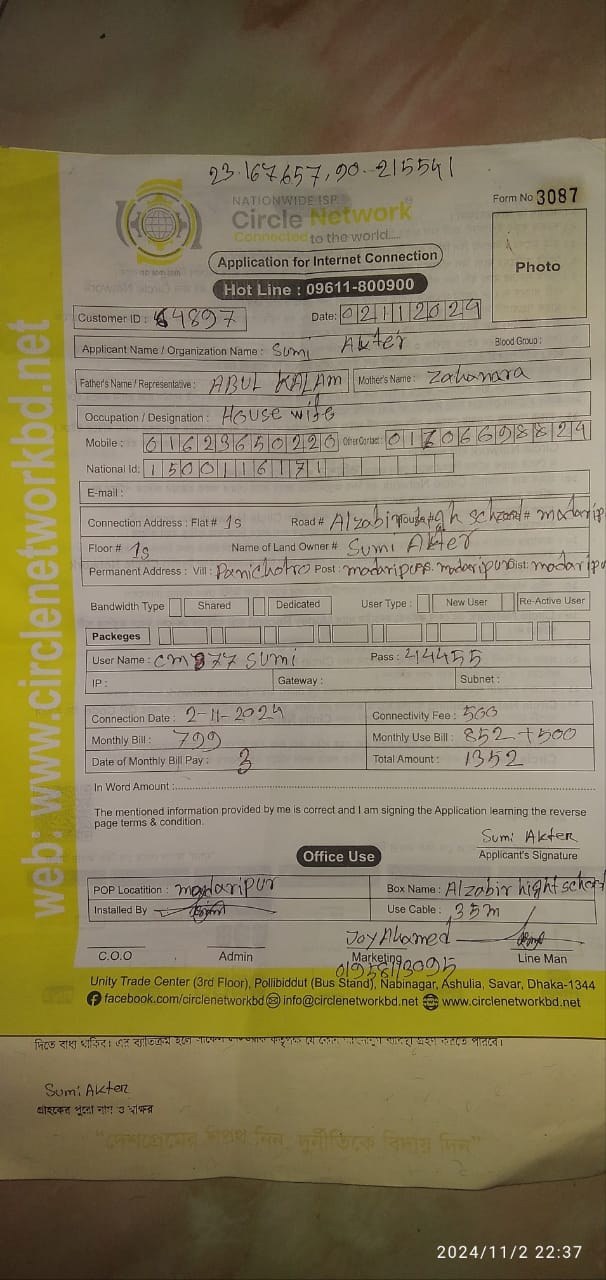 23.167657, 90.215541
NATIONWIDE ISP
Circle Network
Connected to the world....
Form No 3087
Application for Internet Connection
Photo
Hot Line : 09611-800900
Customer ID : 64897 Date: 02112024
Applicant Name / Organization Name : Sumi Akter Blood Group :
Father's Name / Representative : ABUL KALAM Mother's Name : Zahanara
Occupation / Designation : House wife
Mobile : 01623650220 Other Contact : 01706698824
National Id: 1500116171
E-mail :
Connection Address : Flat # 1s Road # Alzabir high school madarip
Floor # 1s Name of Land Owner # Sumi Akter
Permanent Address : Vill : Panichotro Post : madaripur P.S. madaripur Dist: madaripu
Bandwidth Type Shared Dedicated User Type : New User Re-Active User
Packeges
User Name : cm877 sumi Pass : 414455
IP : Gateway : Subnet :
Connection Date : 2-11-2024 Connectivity Fee : 500
Monthly Bill : 799 Monthly Use Bill : 852+500
Date of Monthly Bill Pay : 3 Total Amount : 1352
In Word Amount :
The mentioned information provided by me is correct and I am signing the Application learning the reverse
page terms & condition.
Sumi Akter
Office Use Applicant's Signature
POP Locatition : madaripur Box Name : Alzabir hight school
Installed By Use Cable : 35m
Joy Ahamed
C.O.O Admin Marketing Line Man
01958193095
Unity Trade Center (3rd Floor), Pollibiddut (Bus Stand), Nabinagar, Ashulia, Savar, Dhaka-1344
facebook.com/circlenetworkbd info@circlenetworkbd.net www.circlenetworkbd.net
web: www.circlenetworkbd.net
দিতে বাধ্য থাকিব। এর ব্যতিক্রম হলে
Sumi Akter
গ্রাহকের পুরো নাম ও স্বাক্ষর
“দেশপ্রেমের শপথ নিন, দুর্নীতিকে বিদায় দিন”
2024/11/2 22:37